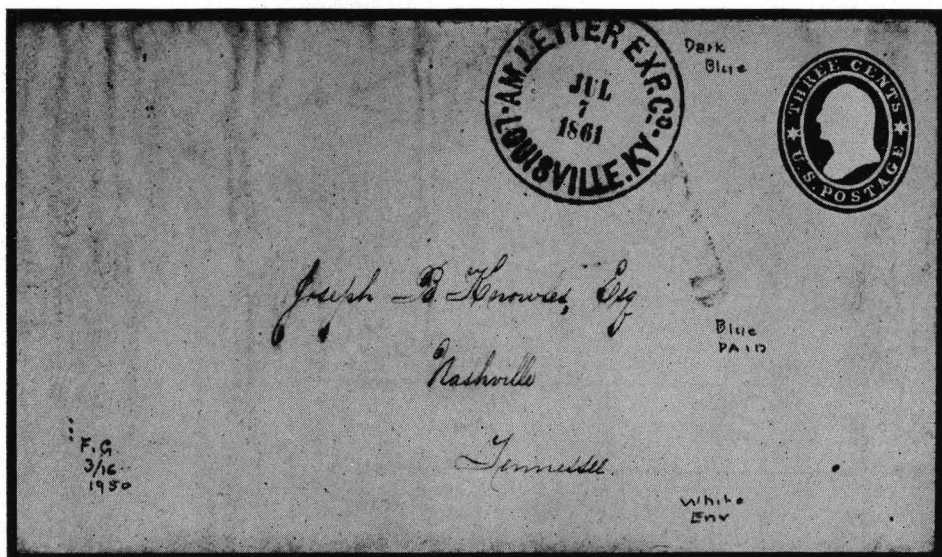 AM. LETTER EXP. Co.
JUL
7
1861
LOUISVILLE. KY
Dark
Blue
THREE CENTS
U.S. POSTAGE
Joseph B. Knowles, Esq
Nashville
Tennessee.
Blue
PAID
F.G.
3/16
1950
White
Env